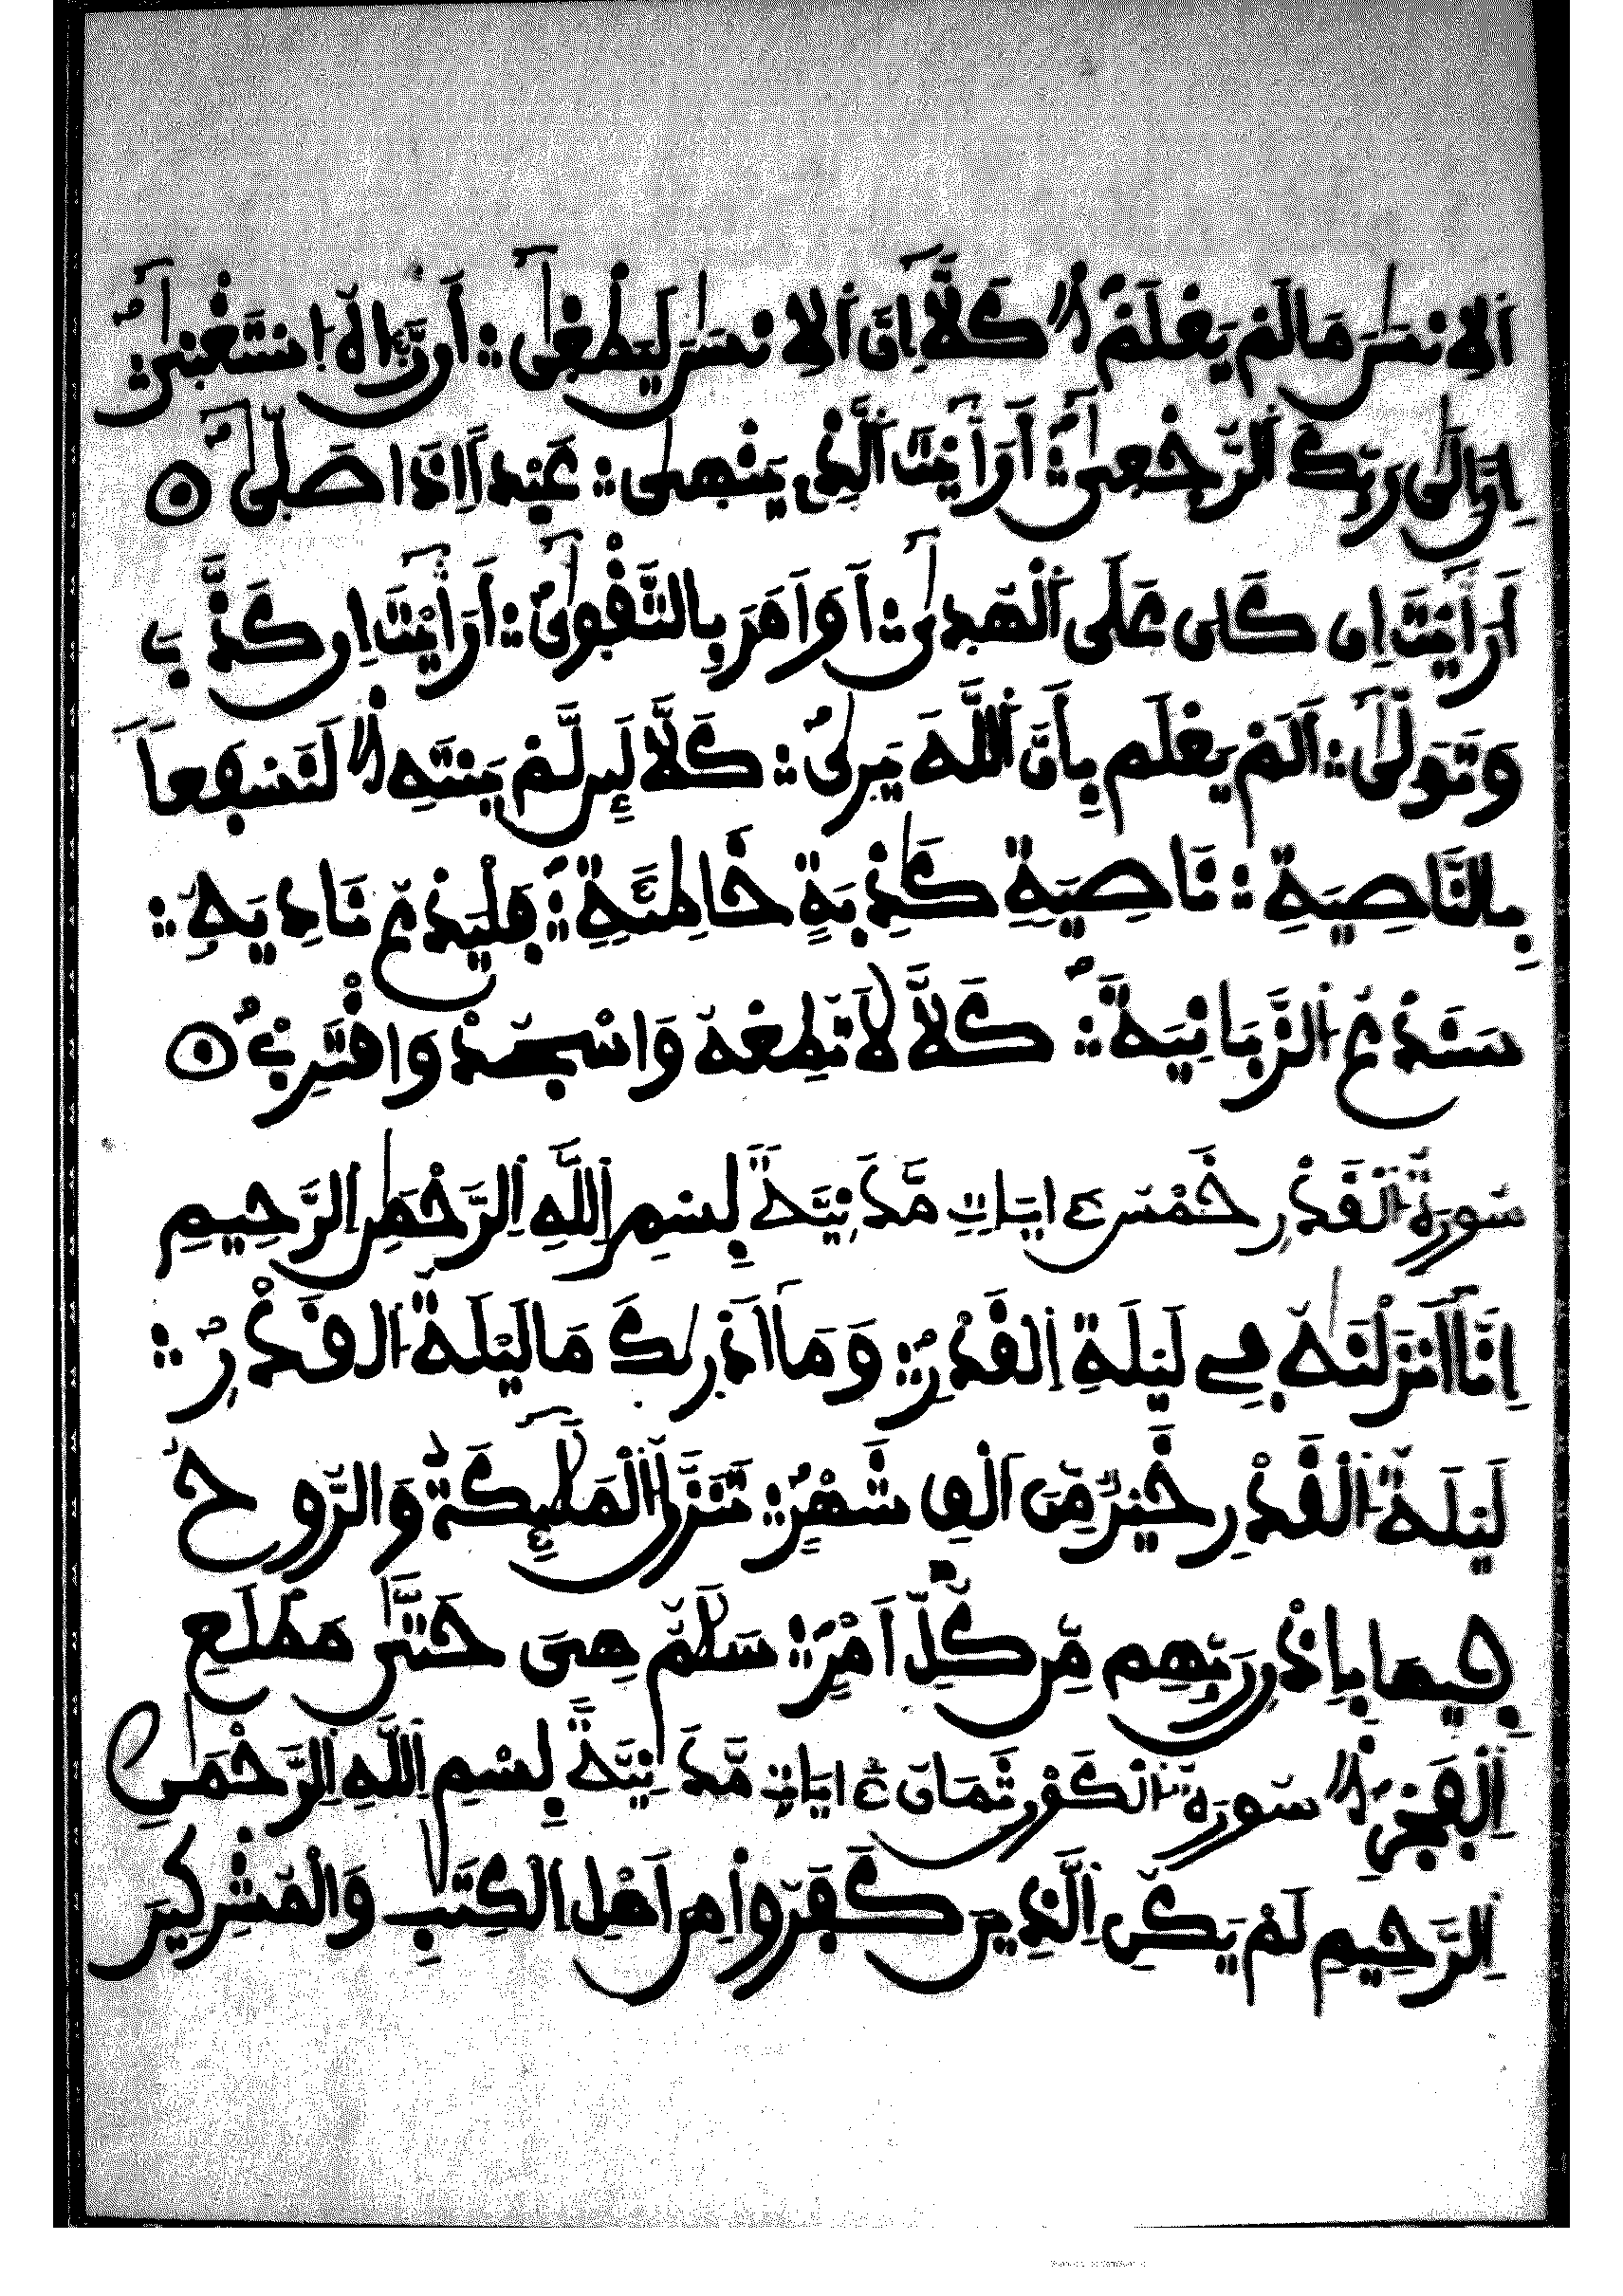 اَلِانسَٰنَ مَا لَمْ يَعْلَمْ كَلَّآ إِنَّ اَلِانسَٰنَ لَيَطْغَىٰٓ أَن رَّءَاهُ اسْتَغْنَىٰٓ
إِنَّ إِلَىٰ رَبِّكَ اَلرُّجْعَىٰٓ أَرَٰٓيْتَ اَلَّذِے يَنْهَىٰ عَبْداً اِذَا صَلَّىٰٓ
أَرَٰٓيْتَ إِن كَانَ عَلَى اَلْهُدَىٰٓ أَوَ اَمَرَ بِالتَّقْوَىٰٓ أَرَٰٓيْتَ إِن كَذَّبَ
وَتَوَلَّىٰٓ أَلَمْ يَعْلَم بِأَنَّ اَللَّهَ يَرَىٰ كَلَّا لَئِن لَّمْ يَنتَهِ لَنَسْفَعاً
بِالنَّاصِيَةِ نَاصِيَةٍ كَٰذِبَةٍ خَاطِئَةٍ فَلْيَدْعُ نَادِيَهُ
سَنَدْعُ اَلزَّبَانِيَةَ كَلَّا لَا تُطِعْهُ وَاسْجُدْ وَاقْتَرِب
سُورَةُ اَلْقَدْرِ خَمْسُ ءَايَاتٍ مَّدَنِيَّةٌ بِسْمِ اِللَّهِ اِلرَّحْمَٰنِ اِلرَّحِيمِ
إِنَّآ أَنزَلْنَٰهُ فِے لَيْلَةِ اِلْقَدْرِ وَمَآ أَدْرَىٰكَ مَا لَيْلَةُ اُلْقَدْرِ
لَيْلَةُ اُلْقَدْرِ خَيْرٌ مِّنَ اَلْفِ شَهْرٍ تَنَزَّلُ اُلْمَلَٰٓئِكَةُ وَالرُّوحُ
فِيهَا بِإِذْنِ رَبِّهِم مِّن كُلِّ أَمْرٍ سَلَٰمٌ هِيَ حَتَّىٰ مَطْلَعِ
اِلْفَجْرِ سُورَةُ لَمْ يَكُنْ ثَمَانِ ءَايَاتٍ مَّدَنِيَّةٌ بِسْمِ اِللَّهِ اِلرَّحْمَٰنِ
اِلرَّحِيمِ لَمْ يَكُنِ اِلَّذِينَ كَفَرُوا مِنَ اَهْلِ اِلْكِتَٰبِ وَالْمُشْرِكِينَ